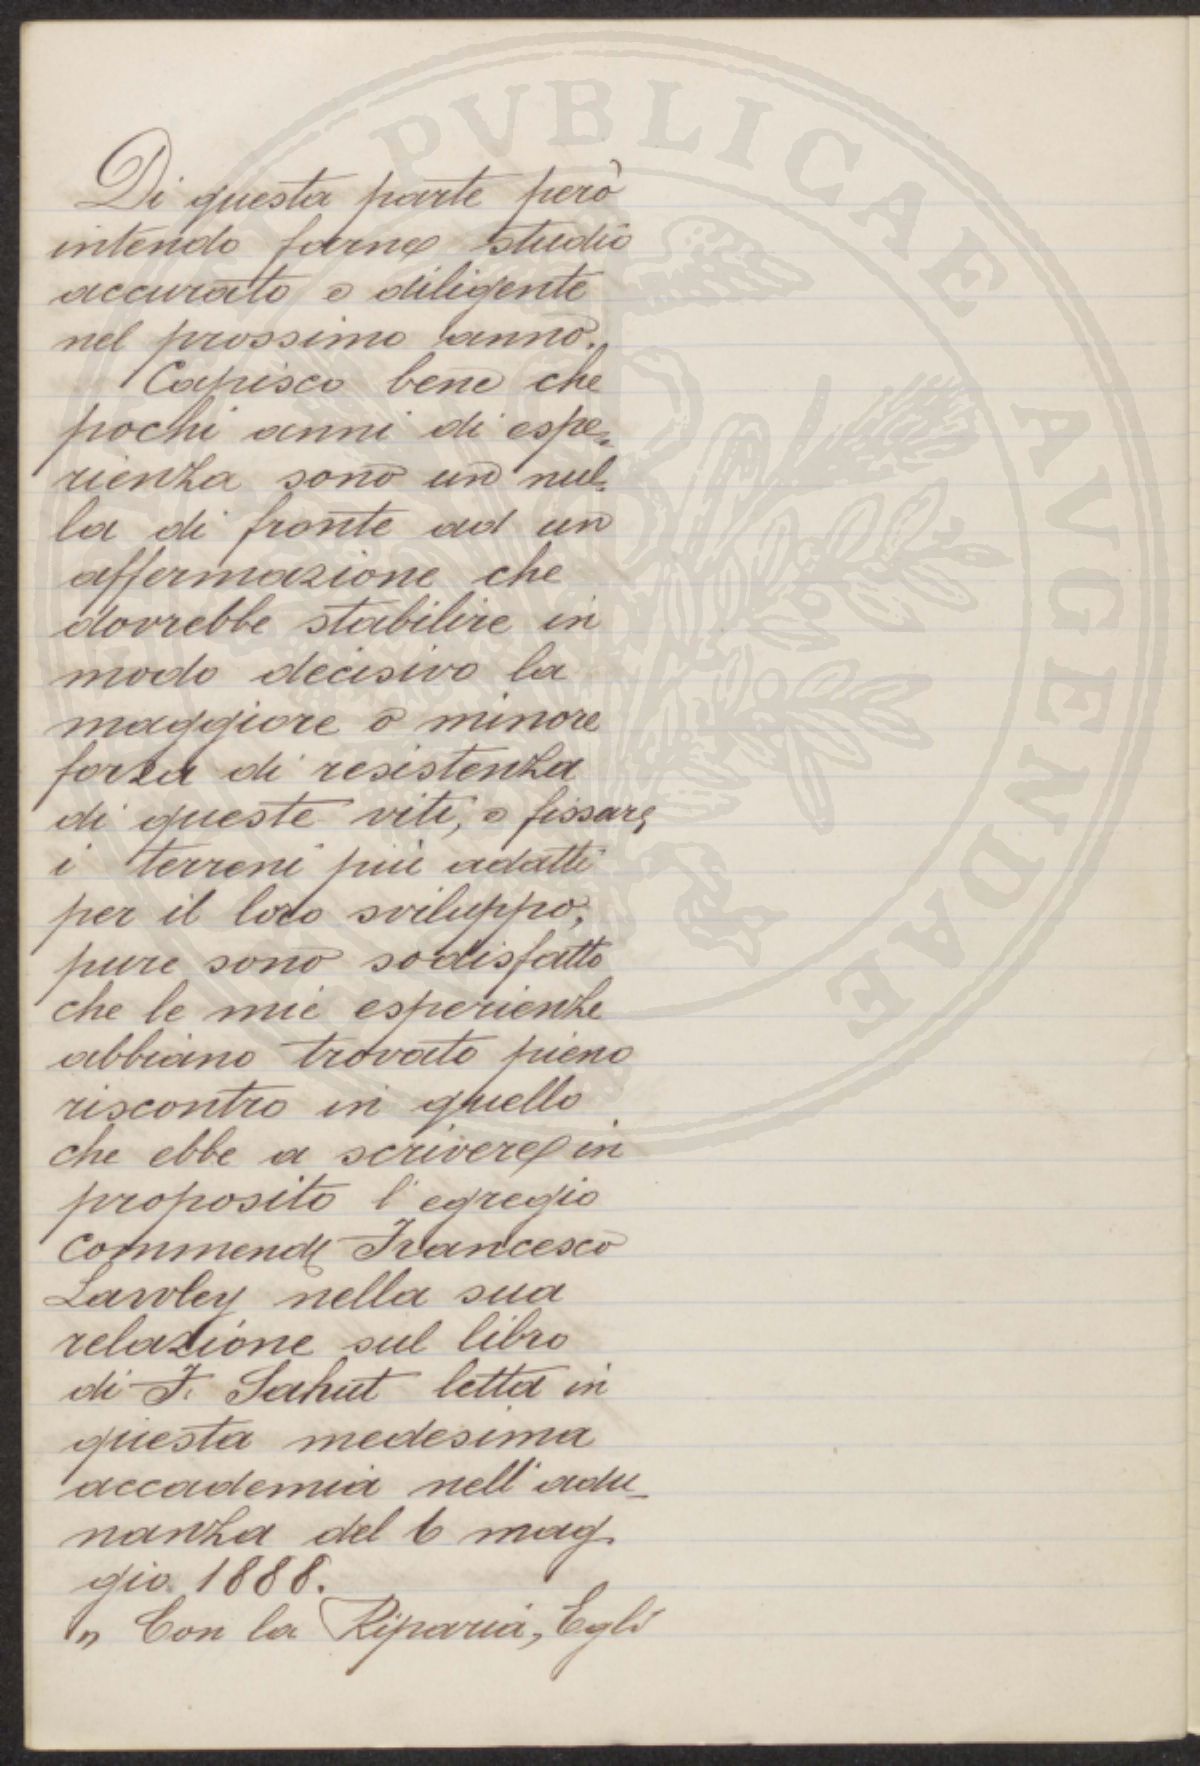 PVBLICAE AVGENDAE
Di questa parte però
intendo farne studio
accurato e diligente
nel prossimo anno.
Capisco bene che
pochi anni di espe=
rienza sono un nul=
la di fronte ad un
affermazione che
dovrebbe stabilire in
modo decisivo la
maggiore o minore
forza di resistenza
di queste viti, e fissare
i terreni più adatti
per il loro sviluppo;
pure sono sodisfatto
che le mie esperienze
abbiano trovato pieno
riscontro in quello
che ebbe a scrivere in
proposito l'egregio
Commend. Francesco
Lawley nella sua
relazione sul libro
di F. Sahut letta in
questa medesima
accademia nell'adu_
nanza del 6 mag.
gio. 1888.
„ Con la Riparia, Egli